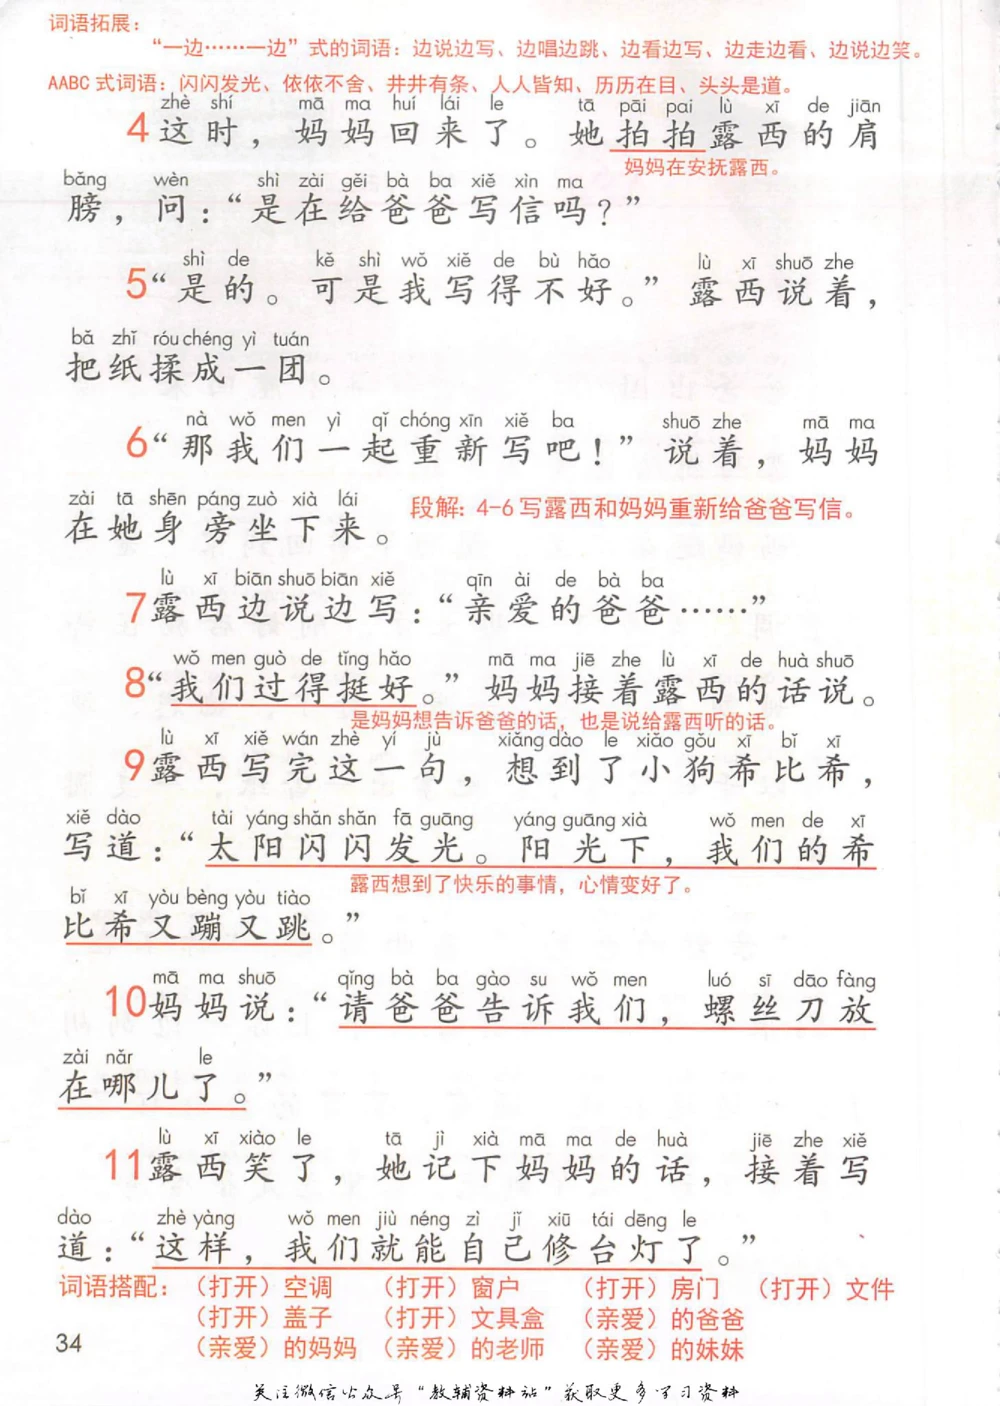 词语拓展：
“一边……一边”式的词语：边说边写、边唱边跳、边看边写、边走边看、边说边笑。
AABC 式词语：闪闪发光、依依不舍、井井有条、人人皆知、历历在目、头头是道。
zhè shí mā ma huí lái le tā pāi pai lù xī de jiān
4 这时，妈妈回来了。她拍拍露西的肩
妈妈在安抚露西。
bǎng wèn shì zài gěi bà ba xiě xìn ma
膀，问：“是在给爸爸写信吗？”
shì de kě shì wǒ xiě de bù hǎo lù xī shuō zhe
5 “是的。可是我写得不好。”露西说着，
bǎ zhǐ róu chéng yì tuán
把纸揉成一团。
nà wǒ men yì qǐ chóng xīn xiě ba shuō zhe mā ma
6 “那我们一起重新写吧！”说着，妈妈
zài tā shēn páng zuò xià lái
在她身旁坐下来。 段解：4-6 写露西和妈妈重新给爸爸写信。
lù xī biān shuō biān xiě qīn ài de bà ba
7 露西边说边写：“亲爱的爸爸……”
wǒ men guò de tǐng hǎo mā ma jiē zhe lù xī de huà shuō
8 “我们过得挺好。”妈妈接着露西的话说。
是妈妈想告诉爸爸的话，也是说给露西听的话。
lù xī xiě wán zhè yí jù xiǎng dào le xiǎo gǒu xī bǐ xī
9 露西写完这一句，想到了小狗希比希，
xiě dào tài yáng shǎn shǎn fā guāng yáng guāng xià wǒ men de xī
写道：“太阳闪闪发光。阳光下，我们的希
露西想到了快乐的事情，心情变好了。
bǐ xī yòu bèng yòu tiào
比希又蹦又跳。”
mā ma shuō qǐng bà ba gào su wǒ men luó sī dāo fàng
10 妈妈说：“请爸爸告诉我们，螺丝刀放
zài nǎr le
在哪儿了。”
lù xī xiào le tā jì xià mā ma de huà jiē zhe xiě
11 露西笑了，她记下妈妈的话，接着写
dào zhè yàng wǒ men jiù néng zì jǐ xiū tái dēng le
道：“这样，我们就能自己修台灯了。”
词语搭配：（打开）空调 （打开）窗户 （打开）房门 （打开）文件
（打开）盖子 （打开）文具盒 （亲爱）的爸爸
（亲爱）的妈妈 （亲爱）的老师 （亲爱）的妹妹
34
关注微信公众号“教辅资料站”获取更多学习资料